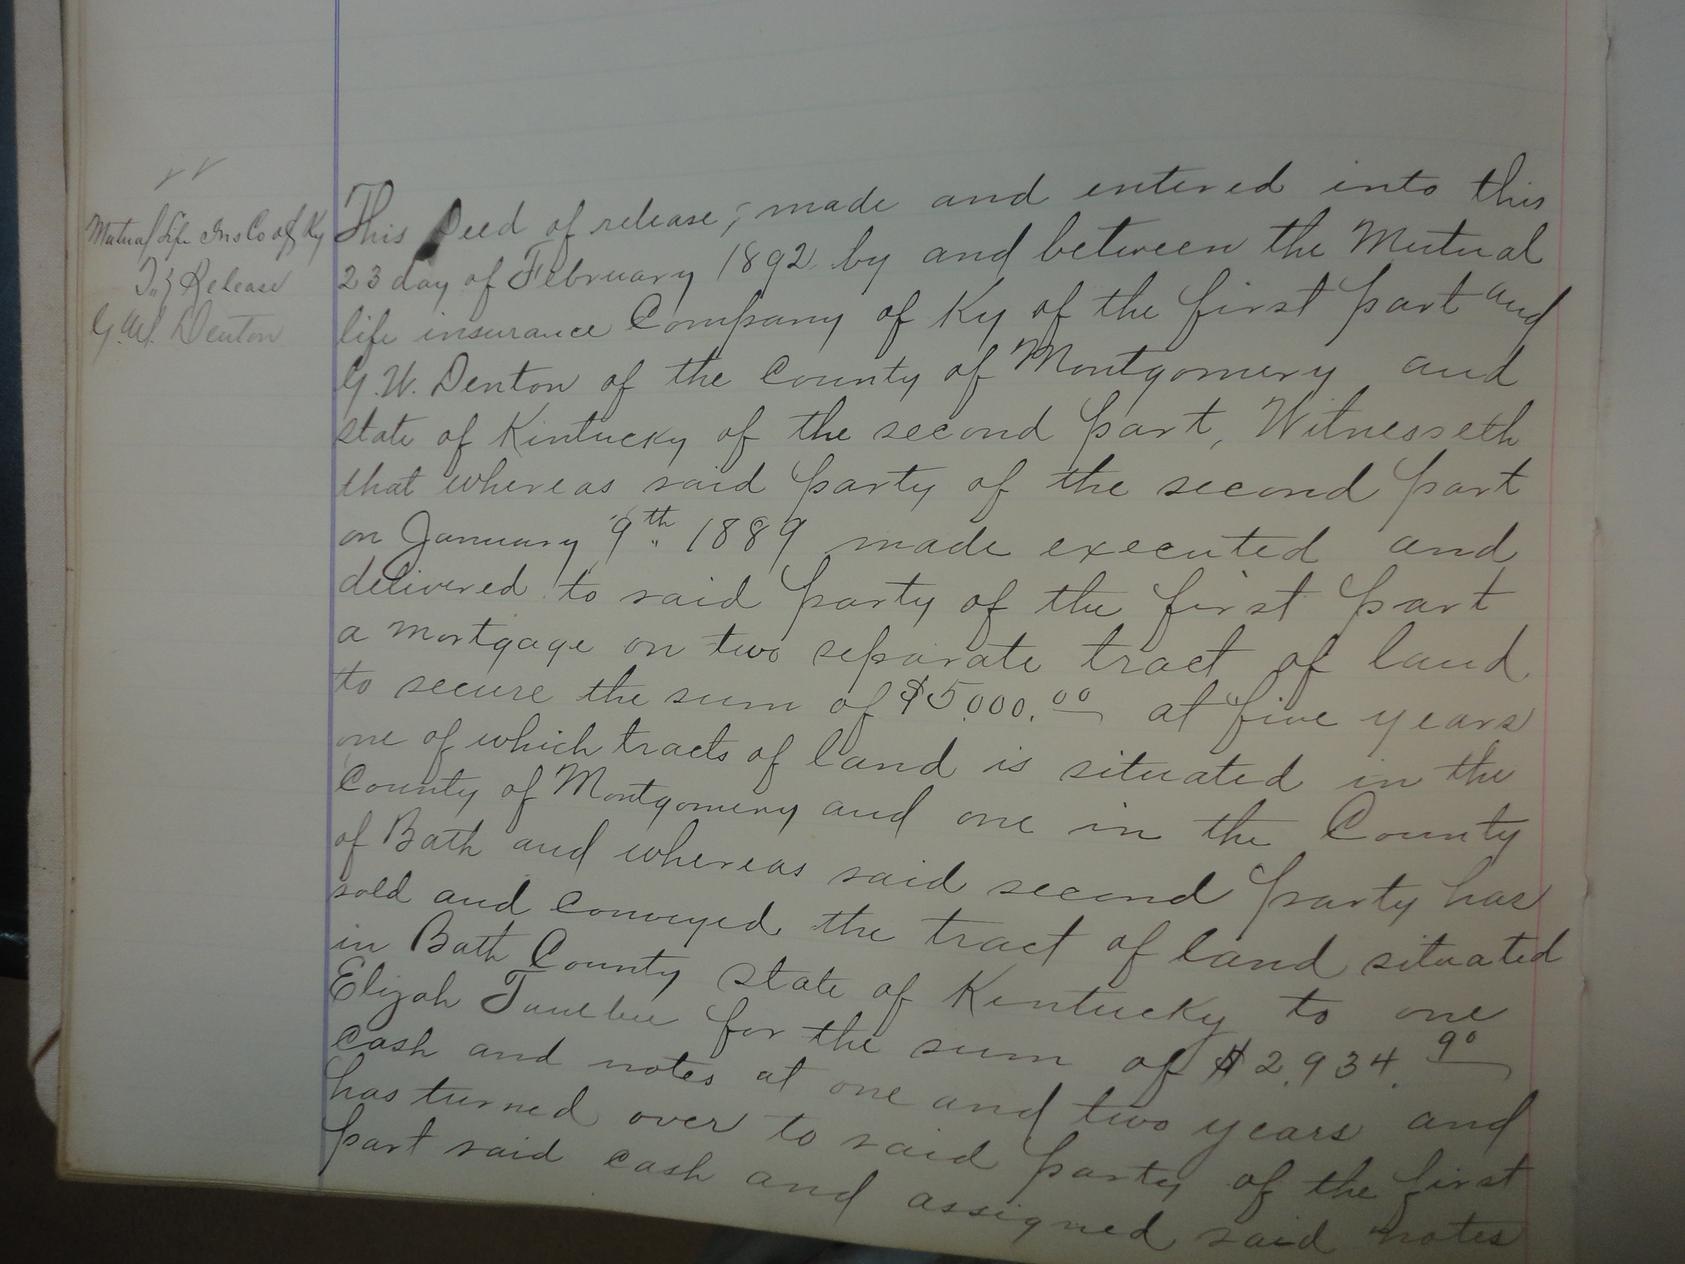 Mutual Life Ins Co of Ky
To } Release
G.W. Denton
This Deed of release, made and entered into this
23 day of February 1892 by and between the Mutual
life insurance Company of Ky of the first part and
G.W. Denton of the County of Montgomery and
state of Kentucky of the second part, Witnesseth
that whereas said party of the second part
on January 9th 1889 made executed and
delivered to said party of the first part
a mortgage on two separate tract of land
to secure the sum of $5,000.00 at five years
one of which tracts of land is situated in the
County of Montgomery and one in the County
of Bath and whereas said second party has
sold and conveyed the tract of land situated
in Bath County state of Kentucky to one
Elijah for the sum of $2,934.90
cash and notes at one and two years and
has turned over to said party of the first
part said cash and assigned said notes